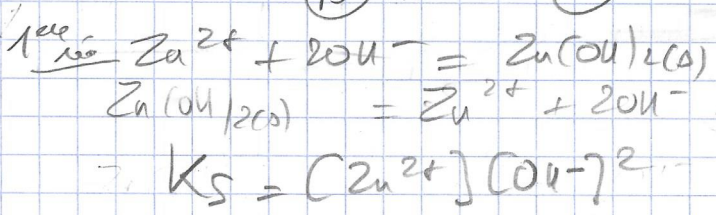 1ère Zn²⁺ + 2OH⁻ = Zn(OH)₂(s)
Zn(OH)₂(s) = Zn²⁺ + 2OH⁻
Ks = [Zn²⁺][OH⁻]²